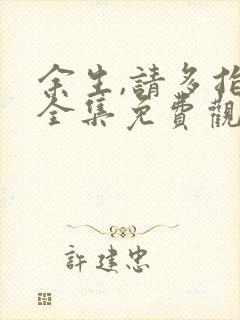 余生,請多指
全集免費觀
許建忠